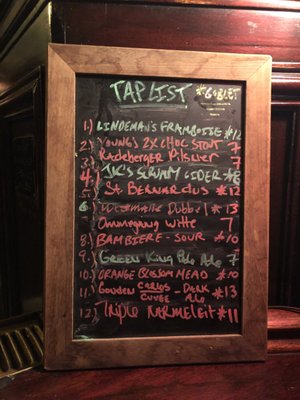 TAP LIST *GOBLET
1.) LINDEMAN'S FRAMBOISE *12
2.) YOUNG'S 2X CHOC STOUT 7
3.) Radeberger Pilsner 7
4.) JK'S SCRUMY CIDER *8
5.) St. BERNARDUS *12
6.) Westmalle Dubbel *13
Ommegang Witte 7
8.) BAM BIERE - SOUR *10
9.) GREEN King Pale Ale 7
10.) ORANGE BLOSSOM MEAD *10
11.) GOUDEN CAROLUS - DARK
CUVEE Ale *13
12.) Triple KARMELEIT *11